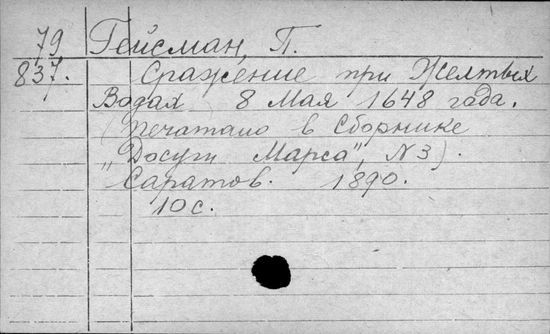 79 Гейсман, П.
837. Сражение при Желтых
Водах 8 Мая 1648 года.
(Печатано в Сборнике
„Досуги Марса", N 3).
Саратов. 1890.
10 с.